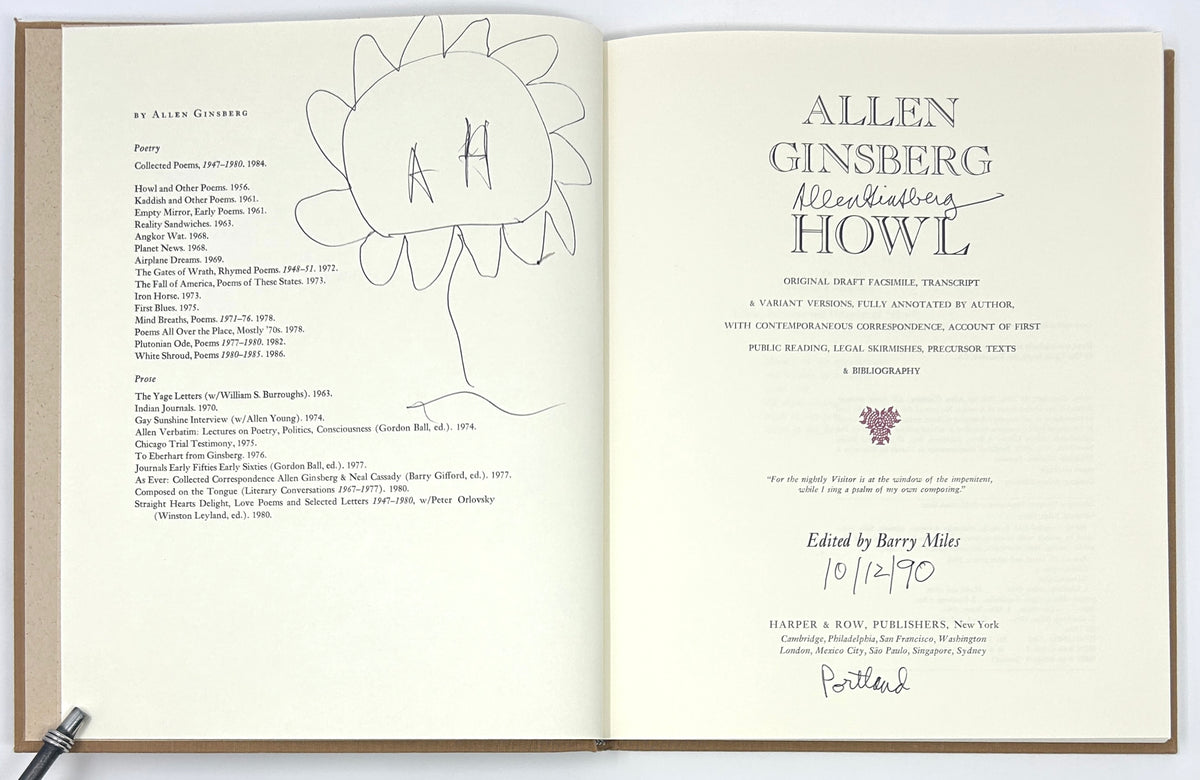 BY ALLEN GINSBERG
Poetry
Collected Poems, 1947–1980. 1984.
Howl and Other Poems. 1956.
Kaddish and Other Poems. 1961.
Empty Mirror, Early Poems. 1961.
Reality Sandwiches. 1963.
Angkor Wat. 1968.
Planet News. 1968.
Airplane Dreams. 1969.
The Gates of Wrath, Rhymed Poems. 1948–51. 1972.
The Fall of America, Poems of These States. 1973.
Iron Horse. 1973.
First Blues. 1975.
Mind Breaths, Poems. 1971–76. 1978.
Poems All Over the Place, Mostly '70s. 1978.
Plutonian Ode, Poems 1977–1980. 1982.
White Shroud, Poems 1980–1985. 1986.
Prose
The Yage Letters (w/William S. Burroughs). 1963.
Indian Journals. 1970.
Gay Sunshine Interview (w/Allen Young). 1974.
Allen Verbatim: Lectures on Poetry, Politics, Consciousness (Gordon Ball, ed.). 1974.
Chicago Trial Testimony, 1975.
To Eberhart from Ginsberg. 1976.
Journals Early Fifties Early Sixties (Gordon Ball, ed.). 1977.
As Ever: Collected Correspondence Allen Ginsberg & Neal Cassady (Barry Gifford, ed.). 1977.
Composed on the Tongue (Literary Conversations 1967–1977). 1980.
Straight Hearts Delight, Love Poems and Selected Letters 1947–1980, w/Peter Orlovsky
(Winston Leyland, ed.). 1980.
A H
ALLEN
GINSBERG
Allen Ginsberg
HOWL
ORIGINAL DRAFT FACSIMILE, TRANSCRIPT
& VARIANT VERSIONS, FULLY ANNOTATED BY AUTHOR,
WITH CONTEMPORANEOUS CORRESPONDENCE, ACCOUNT OF FIRST
PUBLIC READING, LEGAL SKIRMISHES, PRECURSOR TEXTS
& BIBLIOGRAPHY
"For the nightly Visitor is at the window of the impenitent,
while I sing a psalm of my own composing."
Edited by Barry Miles
10/12/90
HARPER & ROW, PUBLISHERS, New York
Cambridge, Philadelphia, San Francisco, Washington
London, Mexico City, São Paulo, Singapore, Sydney
Portland